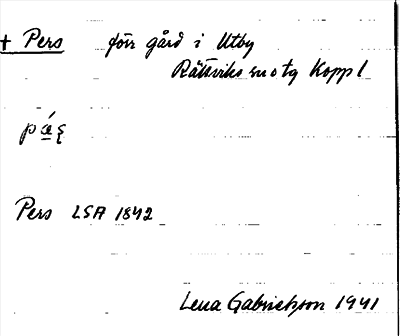 + Pers förr gård i Utby
Rättviks sn o tg Koppl
Pers LSA 1842
Lena Gabrielsson 1941